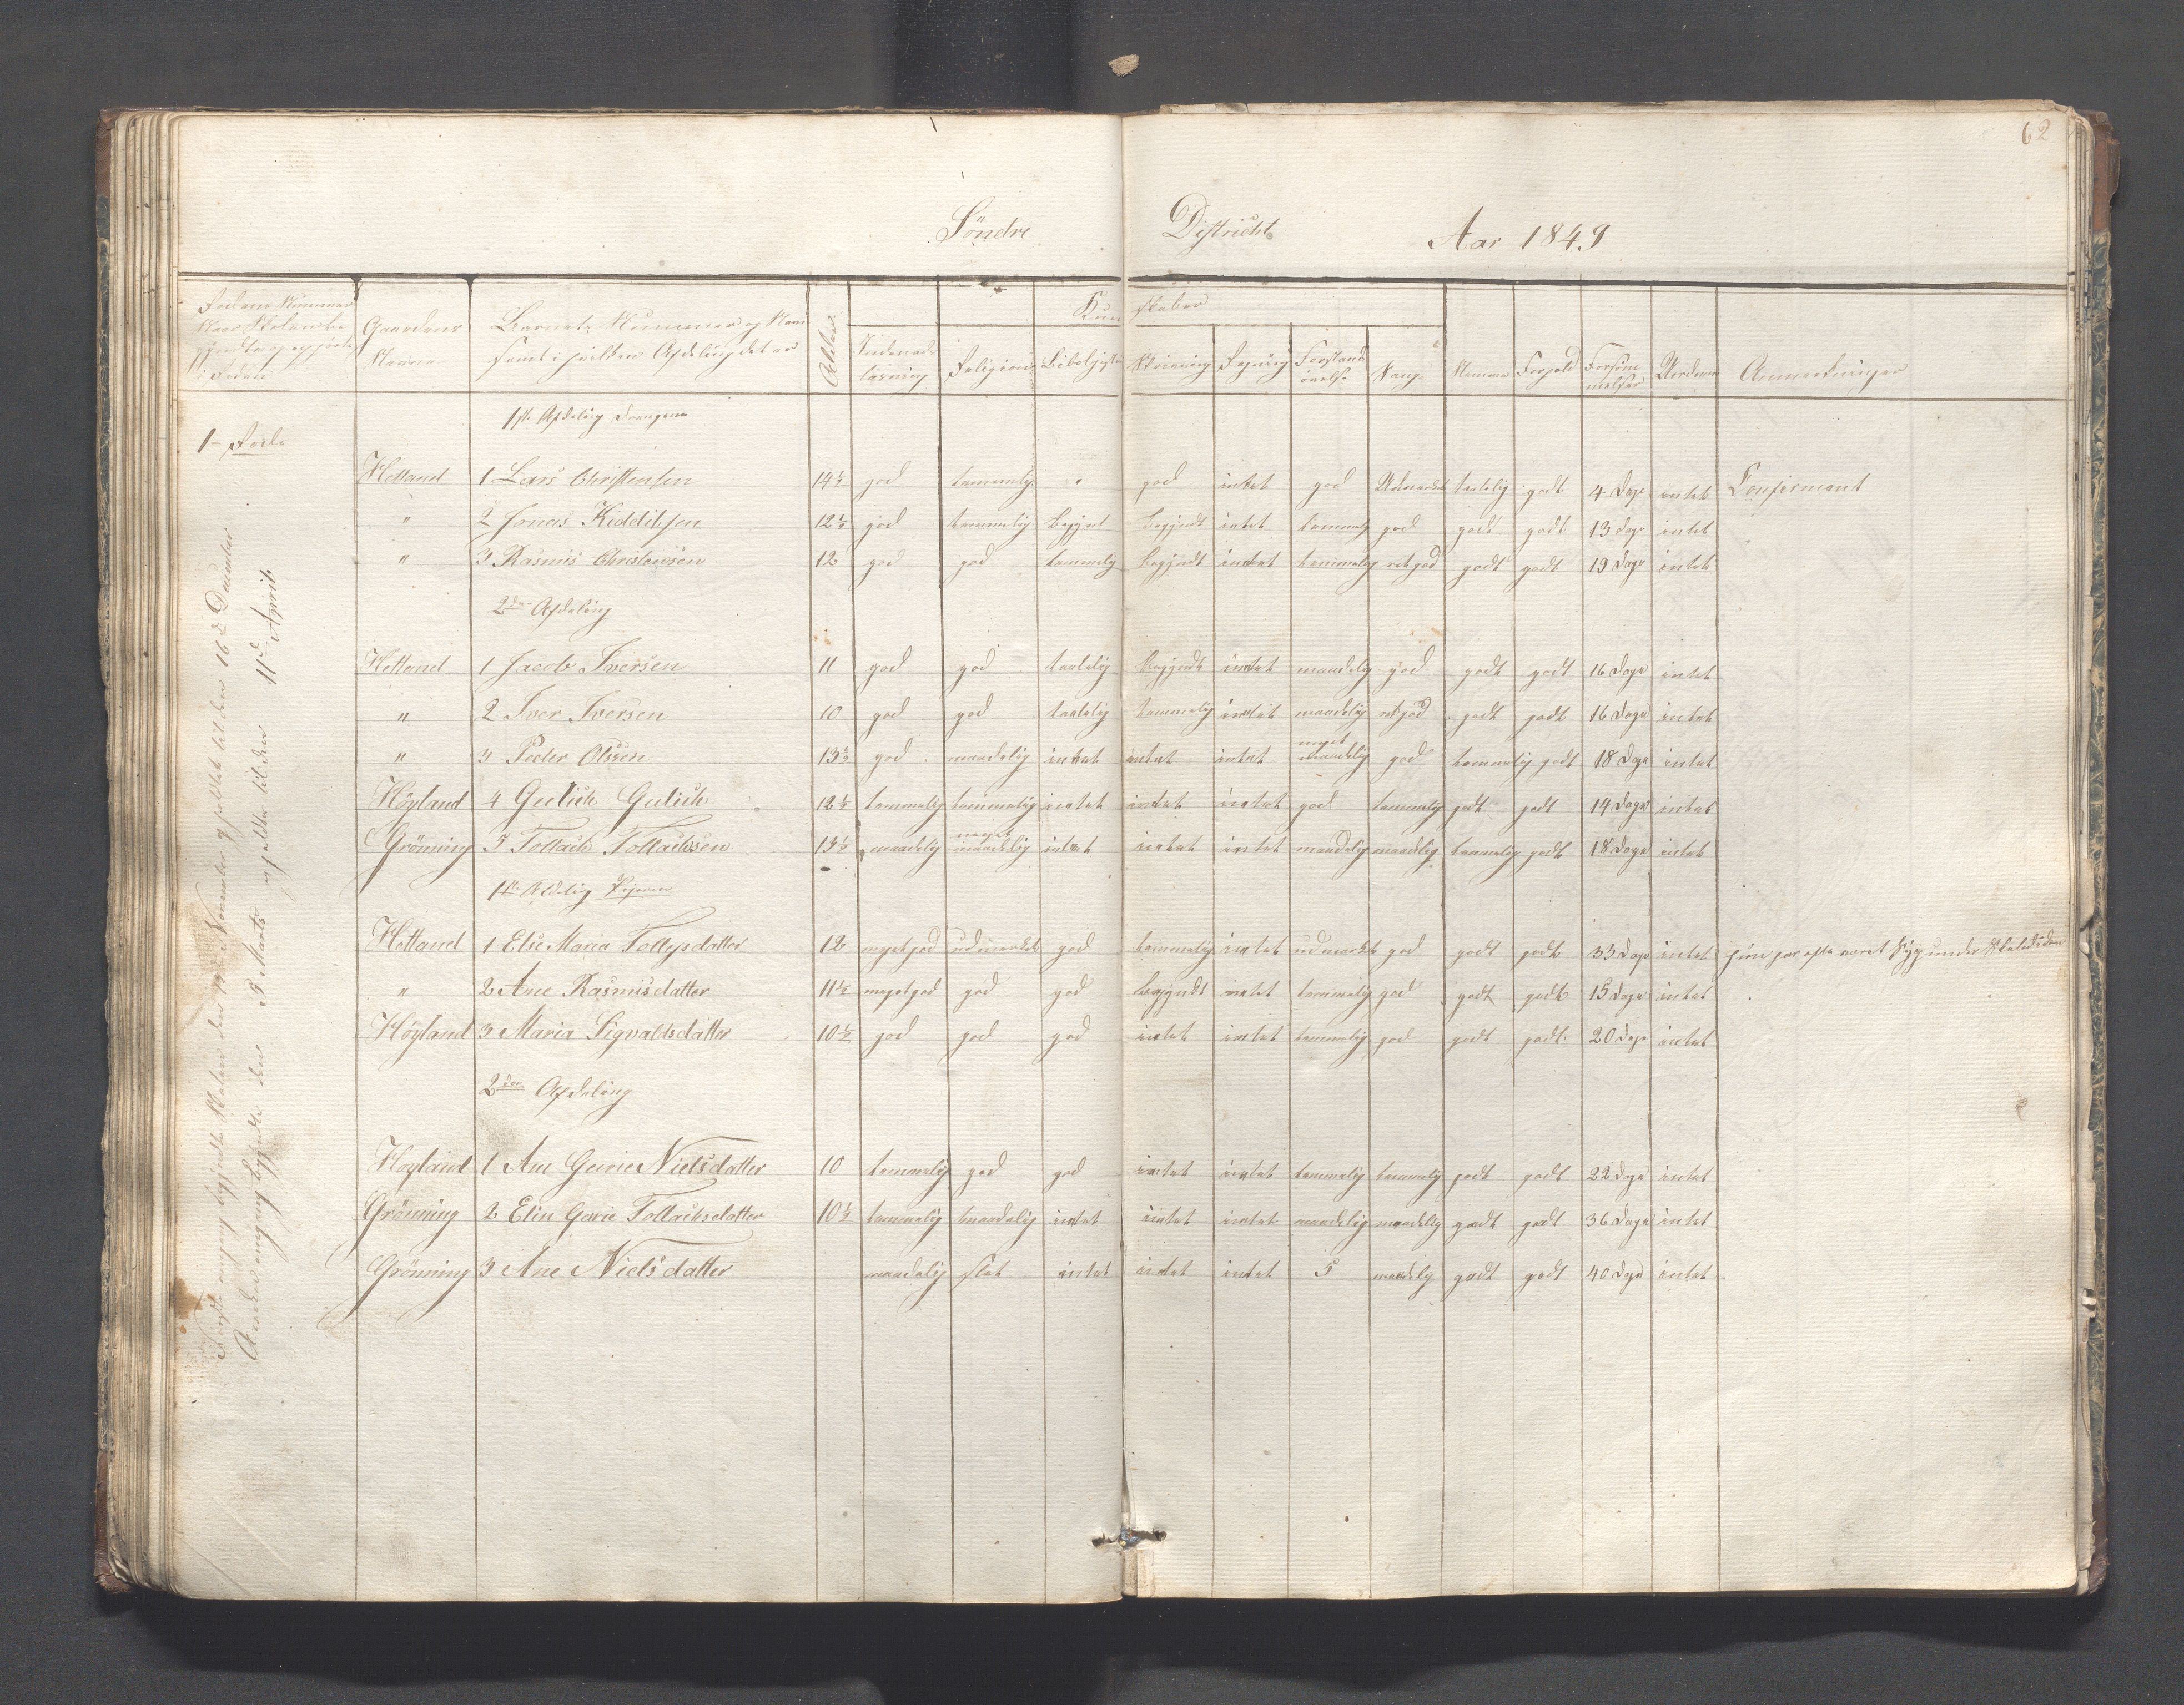 62
Söndre Districht Aar 1849
Rodens Nummer
Naar Skolen be
gyndte og ophörte
i Roden
Gaardens
Navne
Barnets Nummer og Navn
samt i hvilken Afdeling det er
Alder
Kundskaber
Indenads
læsning
Religion
Bibelhistorie
Skrivning
Regning
Forstands
övelse
Sang
Nemme
Forhold
Forsöm
melser
Anmerkninger
1ste Afdeling Drengene
1- Rode
Hetland 1 Lars Christensen 14½ god temmelig " god intet god Udmærket taalelig godt 4 Dage intet Confirmant
" 2 Jonas Keddilsen 12½ god temmelig begynt begyndt intet temmelig god godt godt 13 dage intet
" 3 Rasmus Christensen 12 god god temmelig begyndt intet temmelig ret god godt godt 19 Dage intet
2den Afdeling
Hetland 1 Jacob Iversen 11 god god taalelig begyndt intet maadelig god godt godt 16 Dage intet
" 2 Iver Iversen 10 god god taalelig temmelig intet maadelig ret god godt godt 16 Dage intet
" 3 Peder Olssen 13½ god maadelig intet intet intet meget maadelig god temmelig godt 18 Dage intet
Höyland 4 Gulich Gulich 12½ temmelig temmelig intet intet intet god temmelig godt godt 14 Dage intet
Grönning 5 Tollach Tollachsen 13½ maadelig meget maadelig intet intet intet maadelig maadelig temmelig godt 18 Dage intet
1ste Afdeling Pigerne
Hetland 1 Else Maria Tollysdatter 12 meget god udmerket god temmelig intet udmærket god godt godt 33 Dage intet hun har ofte været Syg under Skoletiden
" 2 Ane Rasmusdatter 11½ meget god god god begyndt intet temmelig god godt godt 15 Dage intet
Höyland 3 Maria Sigvaldsdatter 10½ god god god intet intet temmelig god godt godt 20 Dage intet
2den Afdeling
Hoyland 1 Ane Gurie Nielsdatter 10 temmelig god god intet intet temmelig temmelig godt godt 22 Dage intet
Grönning 2 Elin Gurie Tollachsdatter 10½ temmelig maadelig intet intet intet maadelig maadelig godt godt 36 Dage intet
Grönning 3 Ane Nielsdatter maadelig slet intet intet intet 5 maadelig godt godt 40 Dage intet
Förste omgang begyndte Skolen den 19de November og holdtes til den 16de December
Anden omgang begyndte den 5 Marts og holdtes til den 11te April